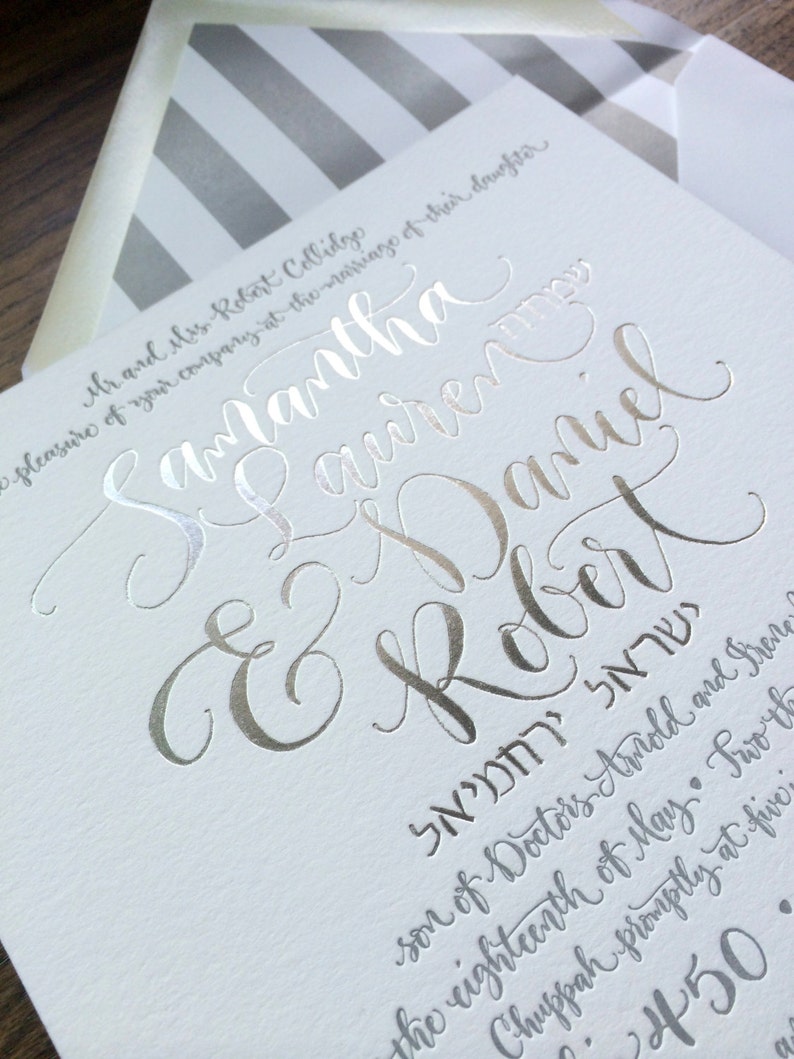 Mr. and Mrs. Robert Collidge
pleasure of your company at the marriage of their daughter
Samantha
Lauren שמחה
& Daniel
Robert
ישראל ירחמיאל
son of Doctors Arnold and Irene
the eighteenth of May • Two
Chuppah promptly at five
450 •